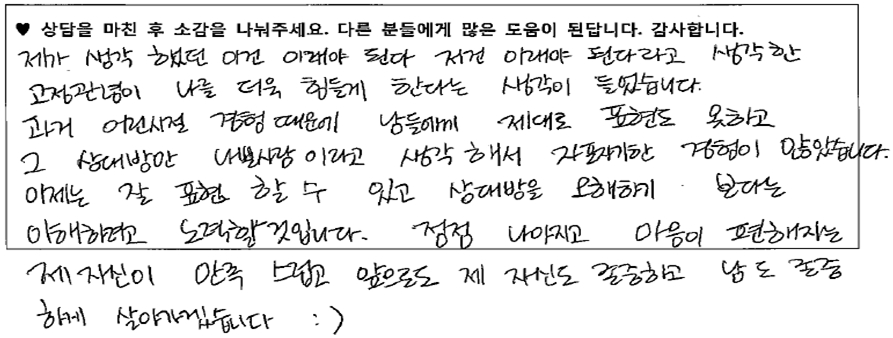 ♥ 상담을 마친 후 소감을 나눠주세요. 다른 분들에게 많은 도움이 된답니다. 감사합니다.
제가 생각 했었던 이건 이래야 된다 저건 이래야 된다라고 생각한
고정관념이 나를 더욱 힘들게 한다는 생각이 들었습니다.
과거 어린시절 경험 때문에 남들에게 제대로 표현도 못하고
그 상대방만 나쁜사람 이라고 생각 해서 자포자기한 경험이 많았습니다.
이제는 잘 표현 할 수 있고 상대방을 오해하기 보다는
이해하려고 노력할것입니다. 점점 나아지고 마음이 편해지는
제 자신이 만족 스럽고 앞으로도 제 자신도 존중하고 남도 존중
하게 살아가겠습니다 :)